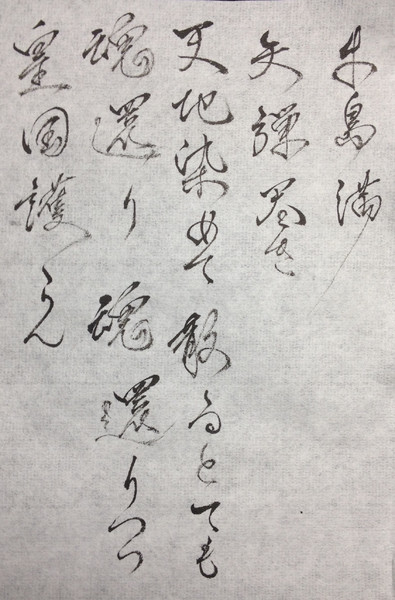 牛島満
矢弾尽き
天地染めて散るとても
魂還り 魂還りつつ
皇国護らん